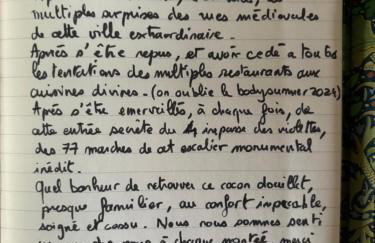 multiples surprises des rues médiévales
de cette ville extraordinaire.
Après s'être repus, et avoir cédé à toutes
les tentations des multiples restaurants aux
cuisines divines - (on oublie le bodysummer 2024)
Après s'être émerveillés, à chaque fois, de
cette entrée secrète du 4 impasse des violettes,
des 77 marches de cet escalier monumental
inédit.
Quel bonheur de retrouver ce cocon douillet,
presque familier, au confort impeccable,
soigné et cossu. Nous nous sommes senti
à chaque montée, merci